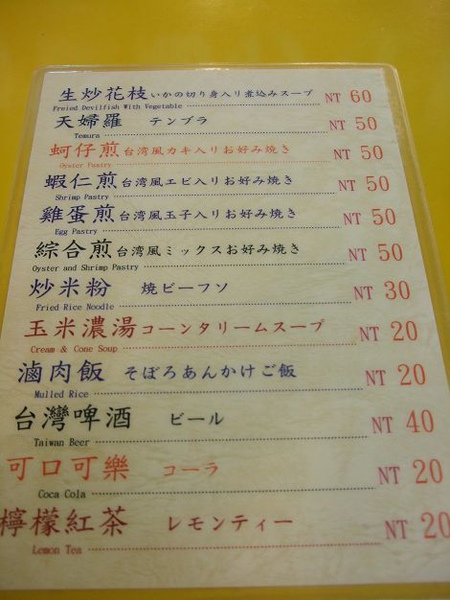 生炒花枝 いかの切り身入り煮込みスープ NT 60
Freied Devilfish With Vegetable
天婦羅 テンブラ NT 50
Temura
蚵仔煎 台湾風カキ入りお好み焼き NT 50
Oyster Pastry
蝦仁煎 台湾風エビ入りお好み焼き NT 50
Shrimp Pastry
雞蛋煎 台湾風玉子入りお好み焼き NT 50
Egg Pastry
綜合煎 台湾風ミックスお好み焼き NT 50
Oyster and Shrimp Pastry
炒米粉 焼ビーフソ NT 30
Fried Rice Noodle
玉米濃湯 コーンタリームスープ NT 20
Cream & Cone Soup
滷肉飯 そぼろあんかけご飯 NT 20
Mulled Rice
台灣啤酒 ビール NT 40
Taiwan Beer
可口可樂 コーラ NT 20
Coca Cola
檸檬紅茶 レモンティー NT 20
Lemon Tea